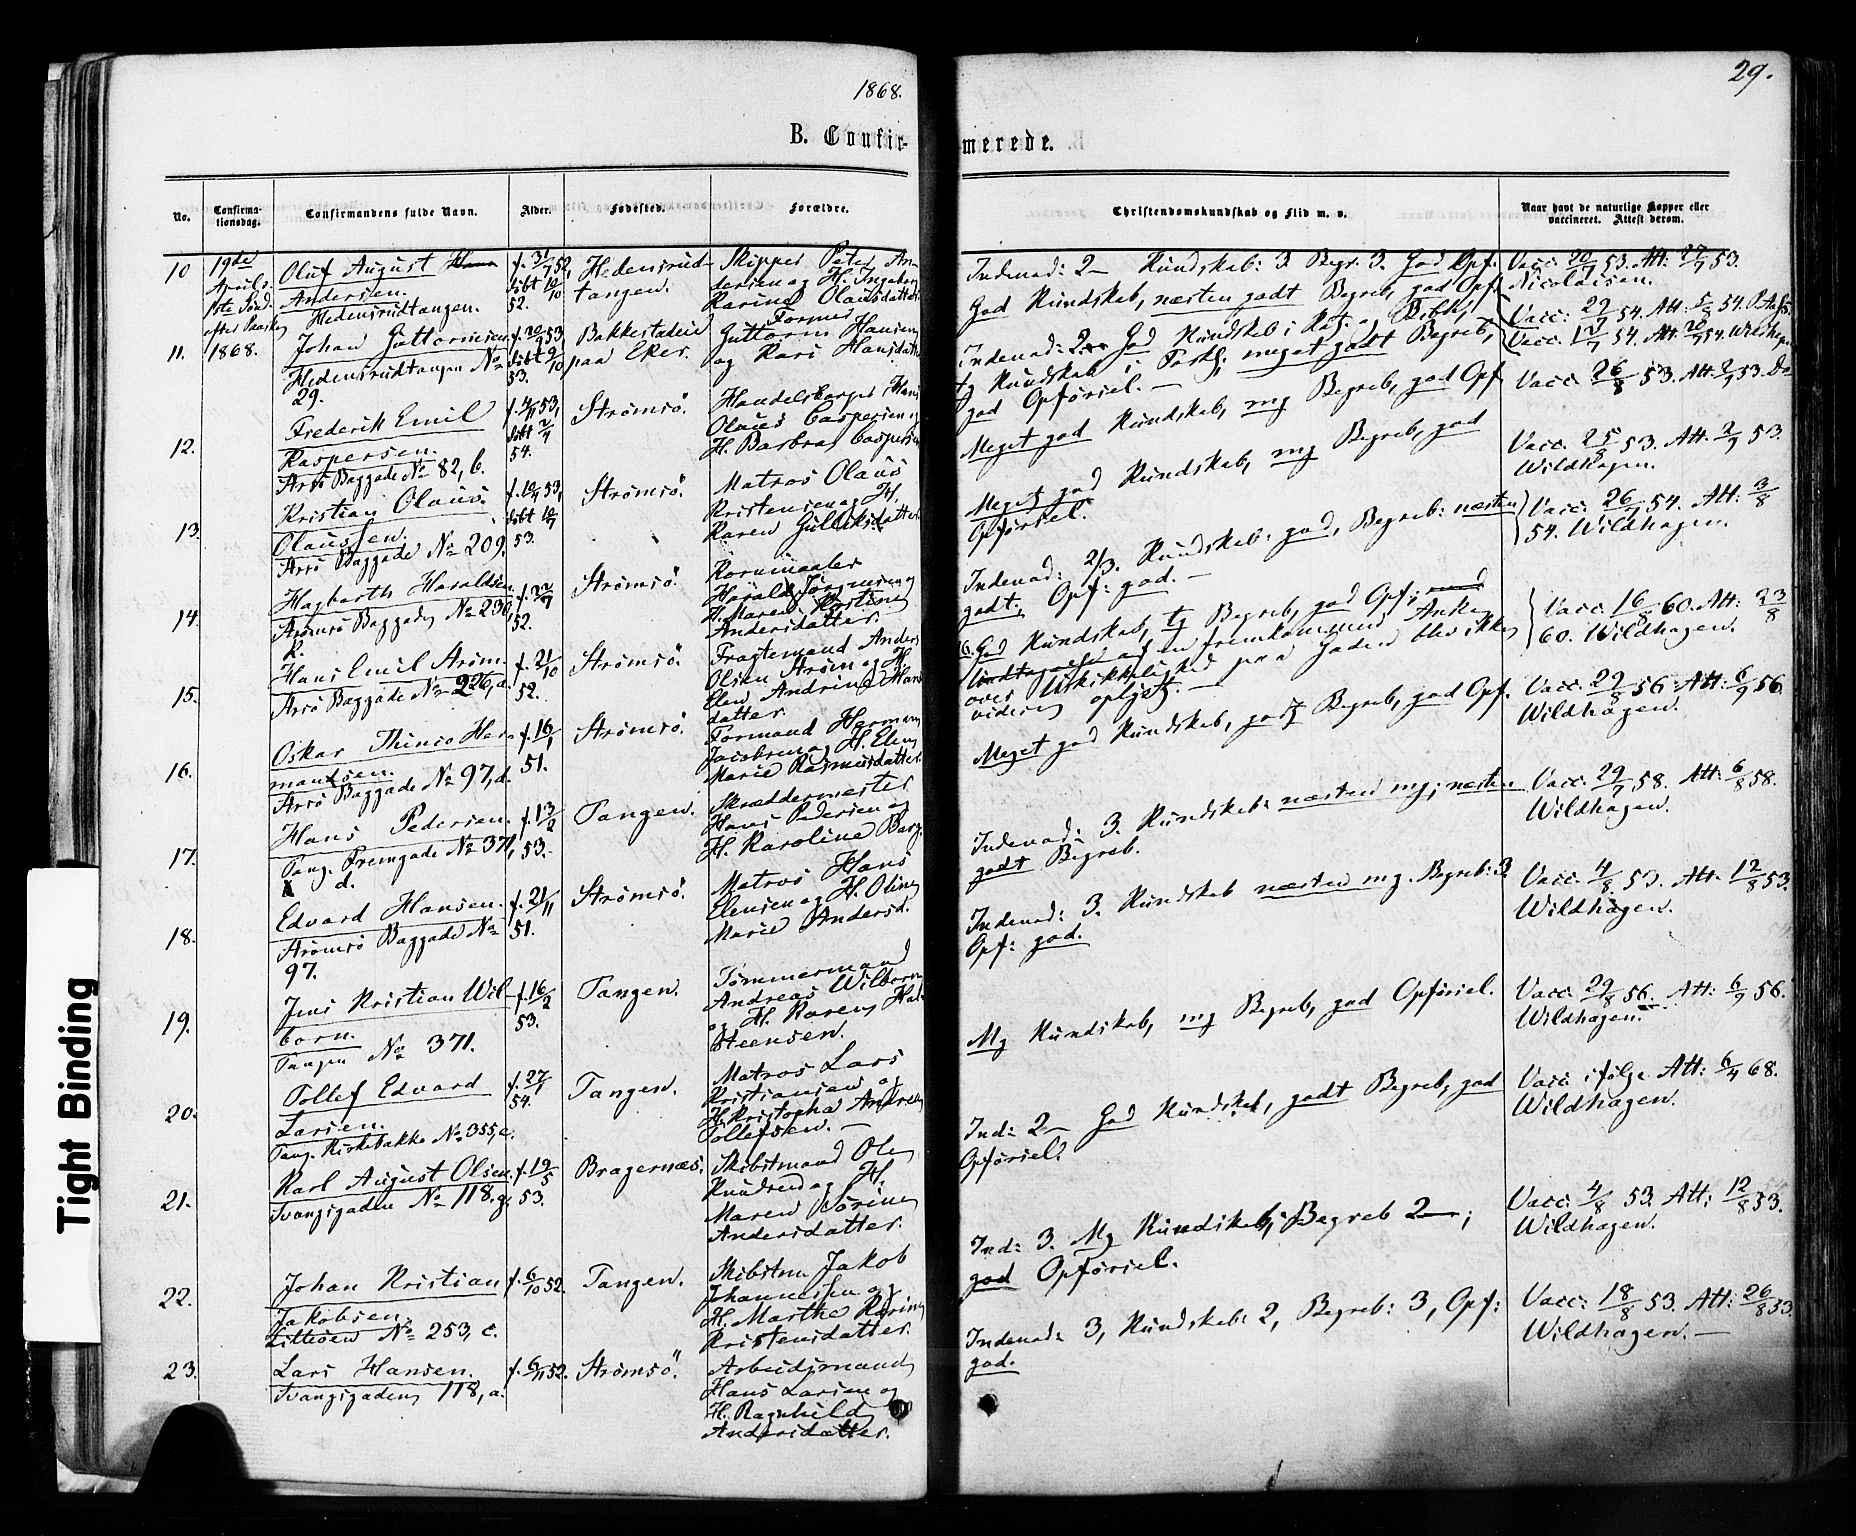 1868.
29.
B. Confir-
merede.
No.
Confirma-
tionsdag.
Confirmandens fulde Navn.
Alder.
Fødested.
Forældre.
Christendomskundskab og Flid m. v.
Naar havt de naturlige Kopper eller
vaccineret. Attest derom.
10
19de
Aprils.
1ste Sønd.
efter Paaske
1868.
Oluf August
Andersen.
Hedensrudtangen.
f. 31/7 52,
døbt 10/10
52.
Hedensrud-
tangen.
Skipper Peter An-
dersen og H. Ingeborg
Karine Olausdatter
Indenad: 2 – Kundskab: 3. Begr: 3. God Opf.
God Kundskab, næsten godt Begreb, god Opf
Vacc. 20/8 53. Att: 27/9 53.
Nicolaisen.
11.
Johan Guttormsen
Hedensrudtangen No
29.
53.
Bakkestuleie
paa Eker.
Former
Guttorm Hansen
og Kari Hansdatter
Indenad: 2 God Kundskab i Kat. og Bibh.,
tg Kundskab i Forkl. meget godt Begreb,
god Opførsel. –
12.
Frederik Emil
Kaspersen.
Strø Baggade No 82, b.
54.
Strømsø.
Handelsborger Hans
Olaus Caspersen og
H. Barbra Caspersen
Meget god Kundskab, mg Begreb, god Opf
Vacc. 26/8 53. Att. 2/9 53. Do
13.
Kristian Olaus
Olaussen.
Strø Baggade No 209.
53.
Strømsø.
Matros Olaus
Kristensen og H.
Karen Gulliksdatter
Meget god Kundskab, mg Begreb, god
Opførsel.
Vacc. 25/8 53. Att. 2/9 53.
Wildhagen.
14.
Hagbarth Haraldsen
Strømsø Baggade No 230,
k.
52.
Strømsø.
Kornmaaler
Harald Jørgensen og
H. Maren Kristine
Andersdatter.
Indenad: 2/3. Kundskab: god, Begreb: næsten
godt; Opf: god. –
Vacc. 26/7 54. Att: 3/8
54. Wildhagen.
15.
Hans Emil Strøm.
Strø Baggade No 226, a.
f. 21/10
52.
Strømsø.
Fragtemand Anders
Olsen Strøm og H.
Elen Andrine Hans
datter.
God Kundskab, tg Begreb, god Opf;
en fremkommen Anke
over Uskikkelighed paa Gaden blev ikke
videre oplyst. –
Vacc. 16/8 60. Att: 23/8
60. Wildhagen.
16.
Oskar Thinso Her-
mansen.
Strø Baggade No 97, d.
f. 16/1
51.
Strømsø.
Formand Herman
Jacobsen og H. Elen
Marie Rasmusdatter.
Meget god Kundskab, godt Begreb, god Opf.
Vacc. 29/8 56. Att: 6/9 56.
Wildhagen.
17.
Hans Pedersen.
Tang. Fremgade No 371,
d.
f. 13/2
53.
Tangen.
Skræddermester
Hans Pedersen og
H. Karoline Berg.
Indenad: 3. Kundskab: næsten mg; næsten
godt Begreb.
Vacc. 29/7 58. Att: 6/8 58.
Wildhagen.
18.
Edvard Hansen.
Strømsø Baggade No
97.
f. 21/11
51.
Strømsø.
Matros Hans
Elensen og H. Oline
Marie Andersd.
Indenad: 3. Kundskab næsten mg. Begreb: 3.
Opf: god.
Vacc. 4/8 53. Att. 12/8 53.
Wildhagen.
19.
Jens Kristian Wil-
born.
Tangen No 371.
f. 16/2
53.
Tangen.
Tømmermand
Andreas Wilborn
og H. Karen Hal-
steensen.
Mg Kundskab, mg Begreb, god Opførsel.
Vacc. 29/8 56. Att: 6/9 56.
Wildhagen.
20.
Tollef Edvard
Larsen.
Tang. Kirkebakke No 355, c.
f. 27/1
54.
Tangen.
Matros Lars
Kristiansen og
H. Kristopha Andrea
Tollefsen. –
Ind: 2 – God Kundskab, godt Begreb, god
Opførsel.
Vacc. ifølge Att: 6/4 68.
Wildhagen.
21.
Karl August Olsen.
Tvangsgaden No 118. g.
f. 19/5
53.
Bragernæs.
Skibstmand Ole
Knudsen og H.
Maren Sørine
Andersdatter.
Ind: 3. Mg Kundskab; Begreb 2 –;
god Opførsel.
Vacc. 4/8 53. Att: 12/8 53.
Wildhagen.
22.
Johan Kristian
Jakobsen.
Litleøen No 253, c.
f. 6/10 52.
Tangen.
Skibstm. Jakob
Johannessen og
H. Marthe Karine
Kristensdatter.
Indenad: 3, Kundskab: 2, Begreb: 3, Opf:
god.
Vacc: 18/8 53. Att: 26/8 53.
Wildhagen. –
23.
Lars Hansen.
Tvangsgaden 118, a.
f. 6/11 52.
Strømsø.
Arbeidsmand
Hans Larsen og
H. Ragnhild
Andersdatter.
Tight Binding